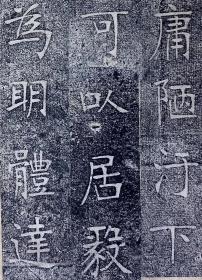 庸陋汙下
可以居毅
為明體達